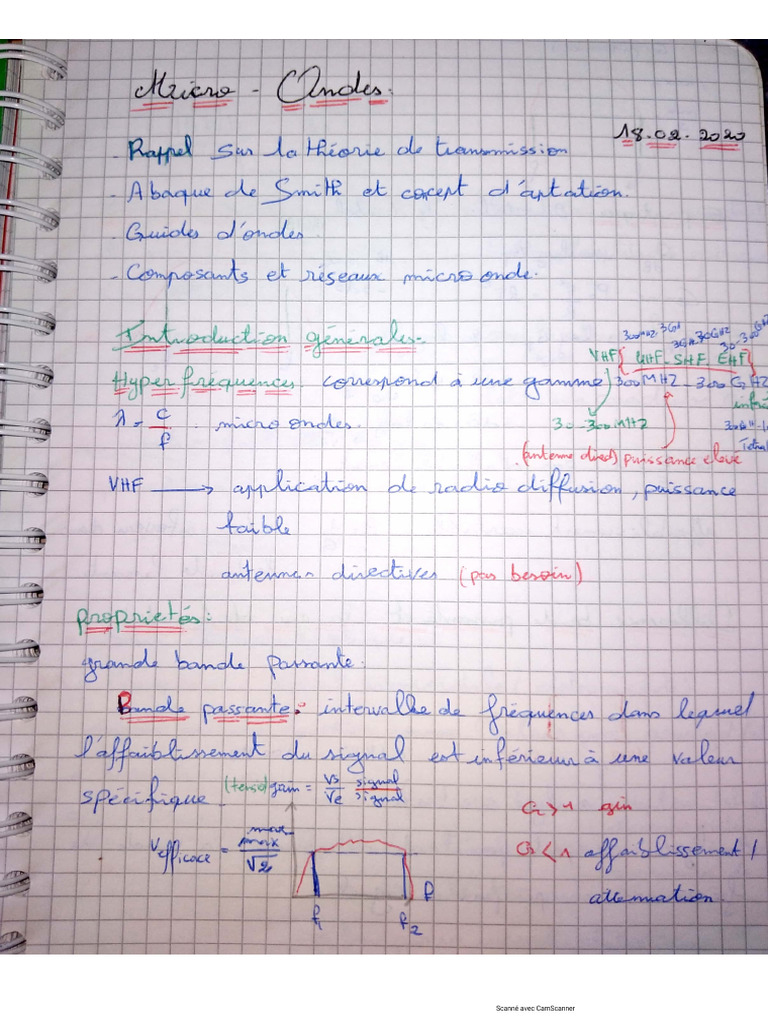 Micro - Ondes.
18.02.2020
- Rappel sur la théorie de transmission
- Abaque de Smith et cocept d'aptation.
- Guides d'ondes
- Composants et réseaux micro onde.
Introduction générales.
300MHZ 3GH 3GHz 30GHZ 30-300GHz
VHF { UHF SHF EHF }
Hyper fréquences correspond à une gamme 300 MHZ - 300 GHZ
λ = c/f . micro ondes. 30-300MHZ
(antenne direct) puissance elevé
VHF → application de radio diffusion, puissance
faible
antennes directives (pas besoin)
Proprietés :
grande bande passante.
Bande passante : intervalle de fréquences dans lequel
l'affaiblissement du signal est inférieur à une valeur
spécifique (tens) gain = Vs/Ve signal/signal
G > 1 gin
Vefficace = max/√2
G < 1 affaiblissement /
attenuation
f
f1 f2
Scanné avec CamScanner